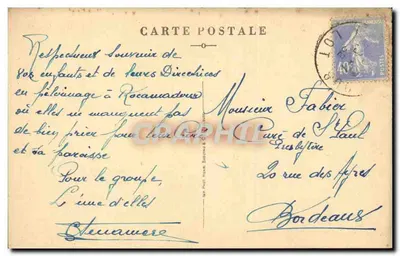 CARTE POSTALE
Respectueux Souvenir de
vos enfants et de leurs Directrices
en pèlerinage à Rocamadour
où elles ne manquent pas
de bien prier pour leur
et sa paroisse
Pour le groupe,
L'une d'elles
Monsieur Fabier
Curé de St Paul
Presbytère
20 rue des Ayres
Bordeaux
LOT